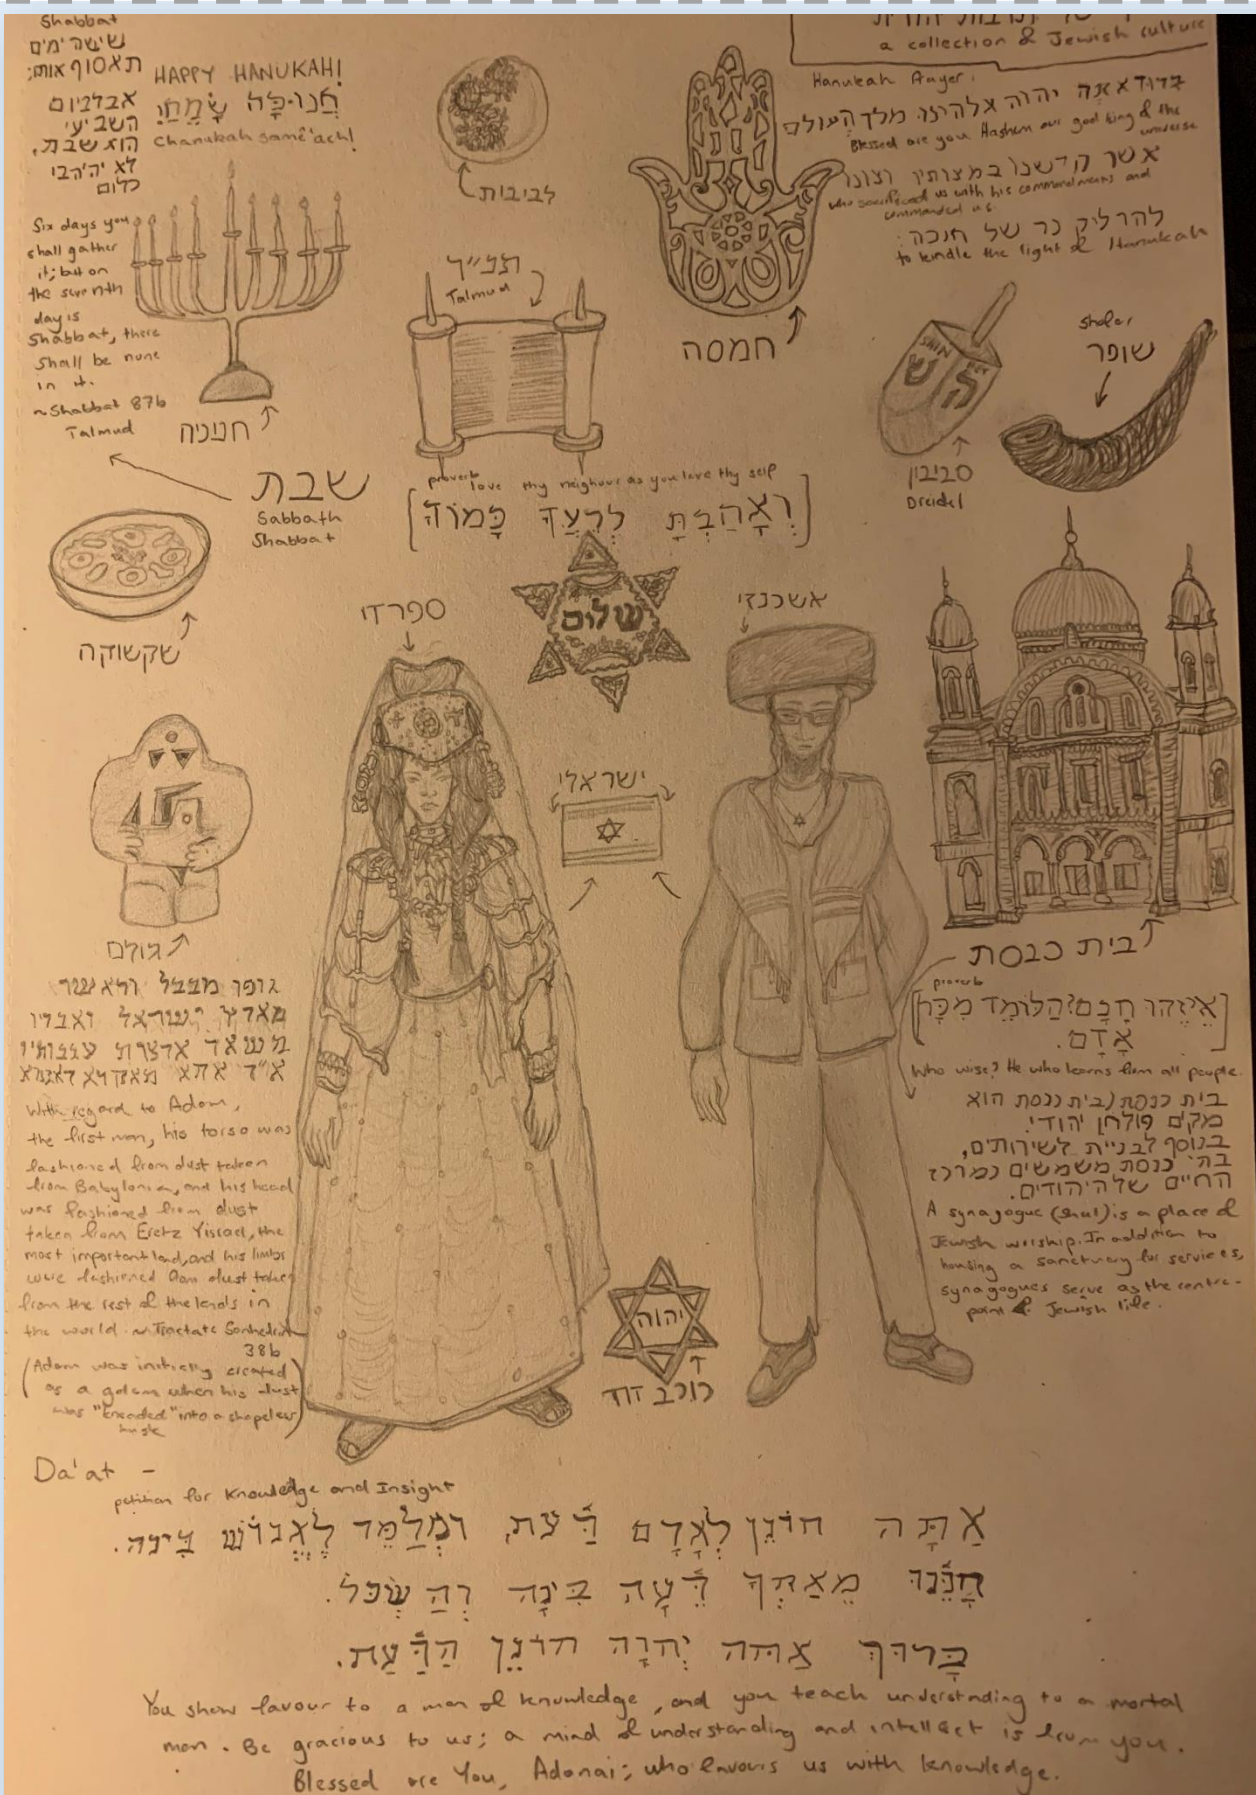 Shabbat
שישה ימים
תאסוף אותו;
השביעי
הוא שבת,
כלום
Six days you
shall gather
it; but on
the seventh
day is
Shabbat, there
shall be none
in it.
~ Shabbat 87b
Talmud
HAPPY HANUKAH!
Chanukah samê'ach!
לביבות
a collection of Jewish culture
Hanukah Prayer:
יהוה אלהינו מלך העולם
Blessed are you Hashem our god king of the
universe
אשר קדשנו במצותיו וצונו
who sacrificed us with his commandments and
commanded us
להדליק נר של חנכה:
to kindle the light of Hanukah
תנ״ך
Talmud
חמסה
SPIN
ש
סביבון
Dreidel
Shofar
שופר
חנוכיה
שבת
Sabbath
Shabbat
proverb
love thy neighour as you love thy self
[וְאָהַבְתָּ לְרֵעֲךָ כָּמוֹךָ]
שקשוקה
ספרדי
שלום
אשכנזי
ישראלי
גולם
With regard to Adam,
the first man, his torso was
fashioned from dust taken
from Babylonia, and his head
was fashioned from dust
taken from Eretz Yisrael, the
most important land, and his limbs
were fashioned from dust taken
from the rest of the lands in
the world ~ Tractate Sanhedrin
38b
(Adam was initially created
as a golem when his dust
was "kneaded" into a shapeless
husk)
בית כנסת
proverb
[אֵיזֶהוּ חָכָם? הַלּוֹמֵד מִכָּל
אָדָם.]
Who wise? He who learns from all people.
הוא
מקום פולחן יהודי.
בנוסף לבניית לשירותים,
כנסת משמשים כמרכז
החיים של היהודים.
A synagogue (shul) is a place of
Jewish worship. In addition to
housing a sanctuary for services,
synagogues serve as the centre-
point of Jewish life.
יהוה
דוד
Da'at -
petition for Knowledge and Insight
אַתָּה חוֹנֵן לְאָדָם דַּעַת, וּמְלַמֵּד לֶאֱנוֹשׁ בִּינָה.
חָנֵּנוּ מֵאִתְּךָ דֵּעָה בִּינָה וְהַשְׂכֵּל.
בָּרוּךְ אַתָּה יְהוָה חוֹנֵן הַדַּעַת.
You show favour to a man of knowledge, and you teach understnding to a mortal
man. Be gracious to us; a mind of understanding and intellect is from you.
Blessed are You, Adonai; who favours us with knowledge.